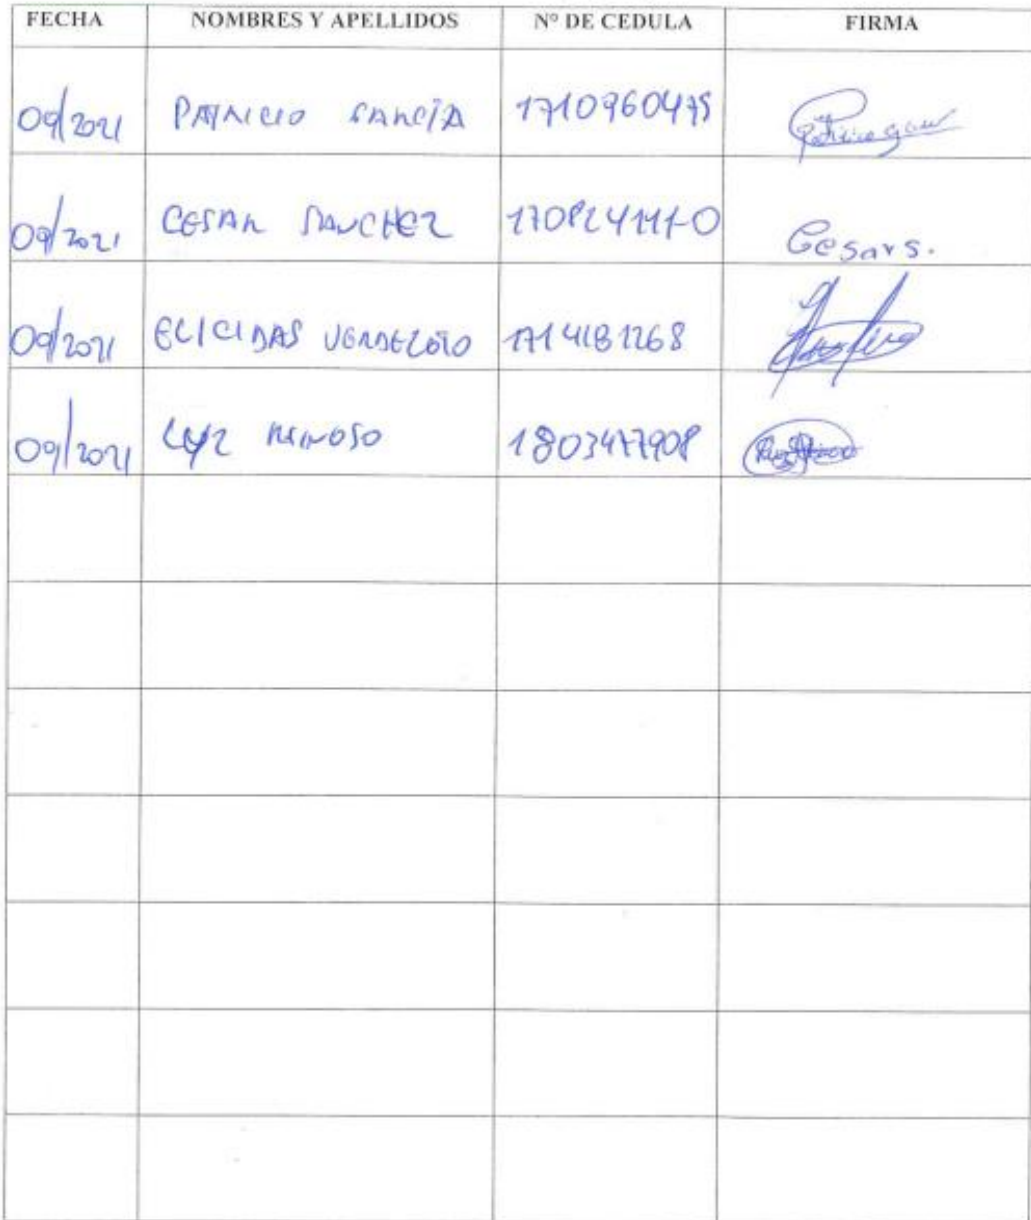 FECHA NOMBRES Y APELLIDOS Nº DE CEDULA FIRMA
09/2021 PATRICIO GARCÍA 1710960475
09/2021 CESAR SANCHEZ 170824111-0 Cesar s.
09/2021 ELICIDAS VERDEZOTO 1714181268
09/2021 REINOSO 1803477908